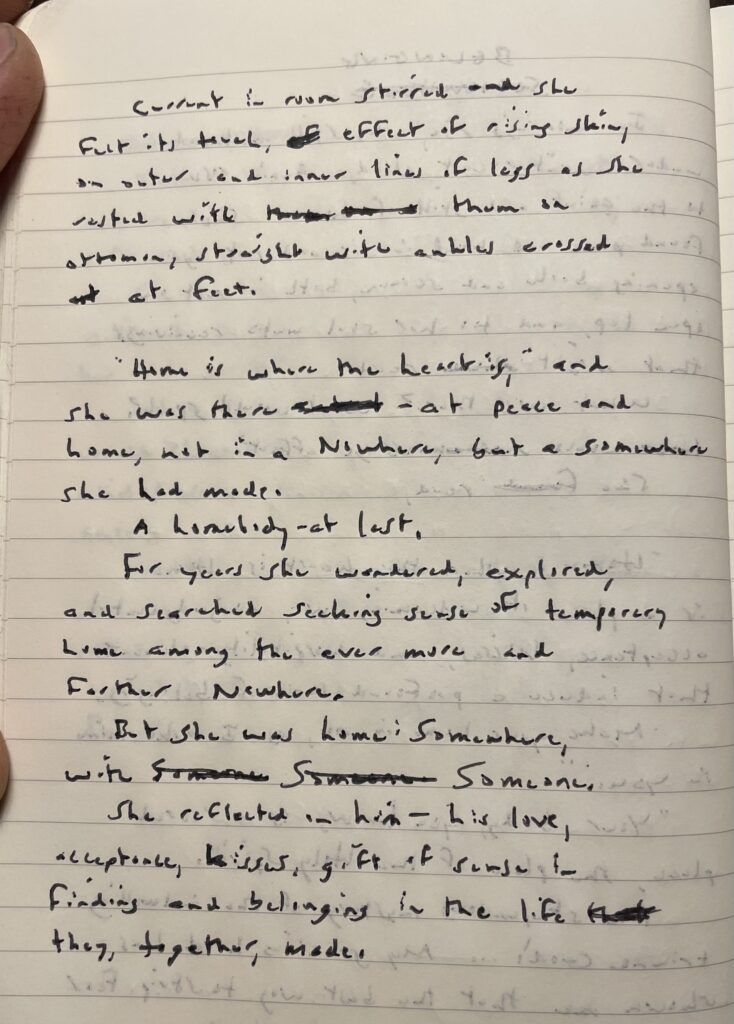 Current in room stirred and she
felt its touch, effect of rising skin,
on outer and inner lines of legs as she
rested with them on
ottoman, straight with ankles crossed
at feet.
"Home is where the heart is," and
she was there - at peace and
home, not in a Nowhere, but a somewhere
she had made.
A homebody - at last.
For years she wandered, explored,
and searched seeking sense of temporary
home among the ever more and
farther Nowhere.
But she was home: Somewhere,
with Someone Someone Someone.
She reflected on him - his love,
acceptance, kisses, gift of sense in
finding and belonging in the life that
they, together, made.